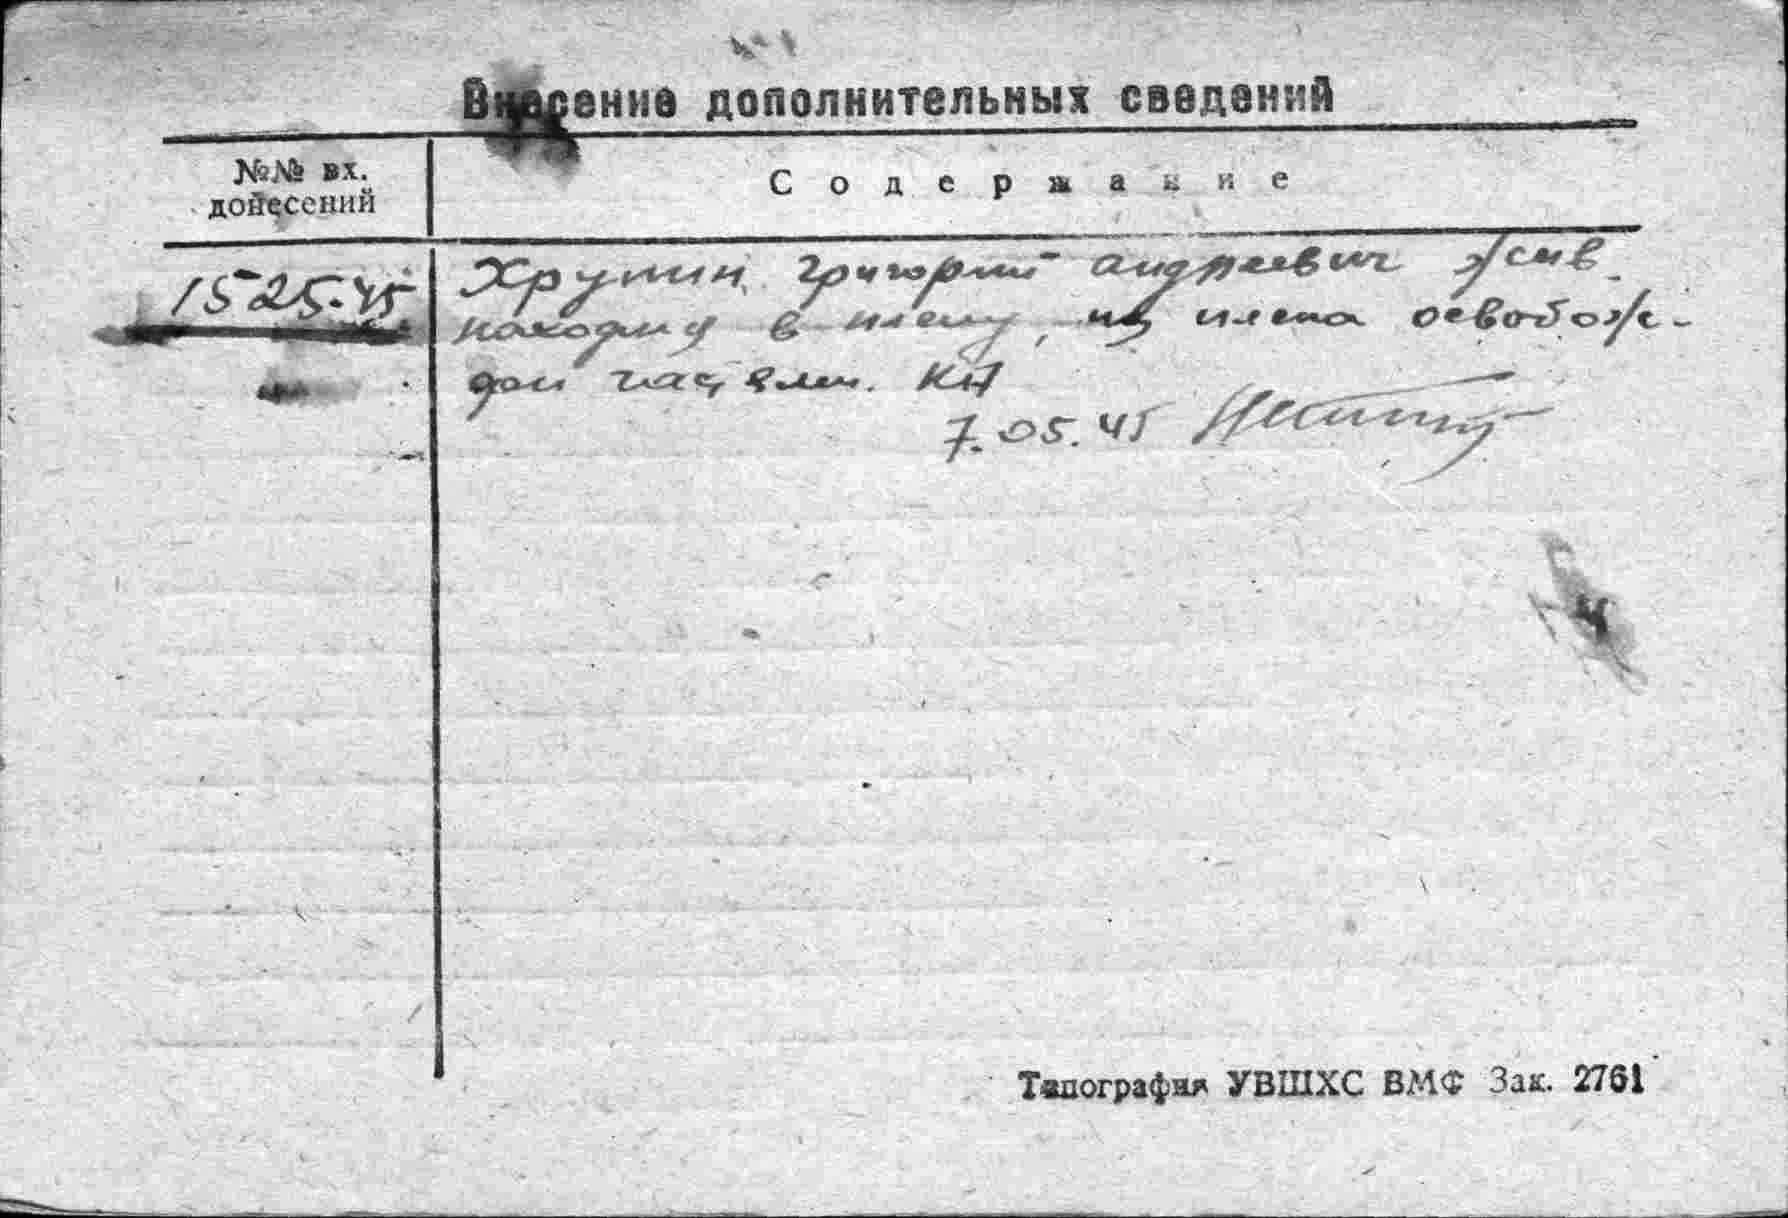 Внесение дополнительных сведений
№№ вх.
донесений
Содержание
1525-45
Григорий Андреевич жив
находид в плену, из плена освобож-
ден частями КА
7.05.45
Типография УВШХС ВМФ Зак. 2761